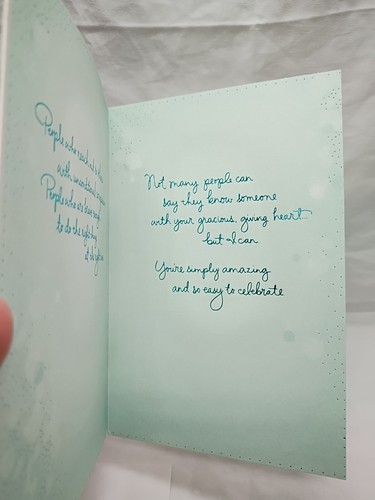 People who reach out to
with unconditional
People who are brave enough
to do the right thing
at
Not many people can
say they know someone
with your gracious, giving heart
but I can
You're simply amazing
and so easy to celebrate.